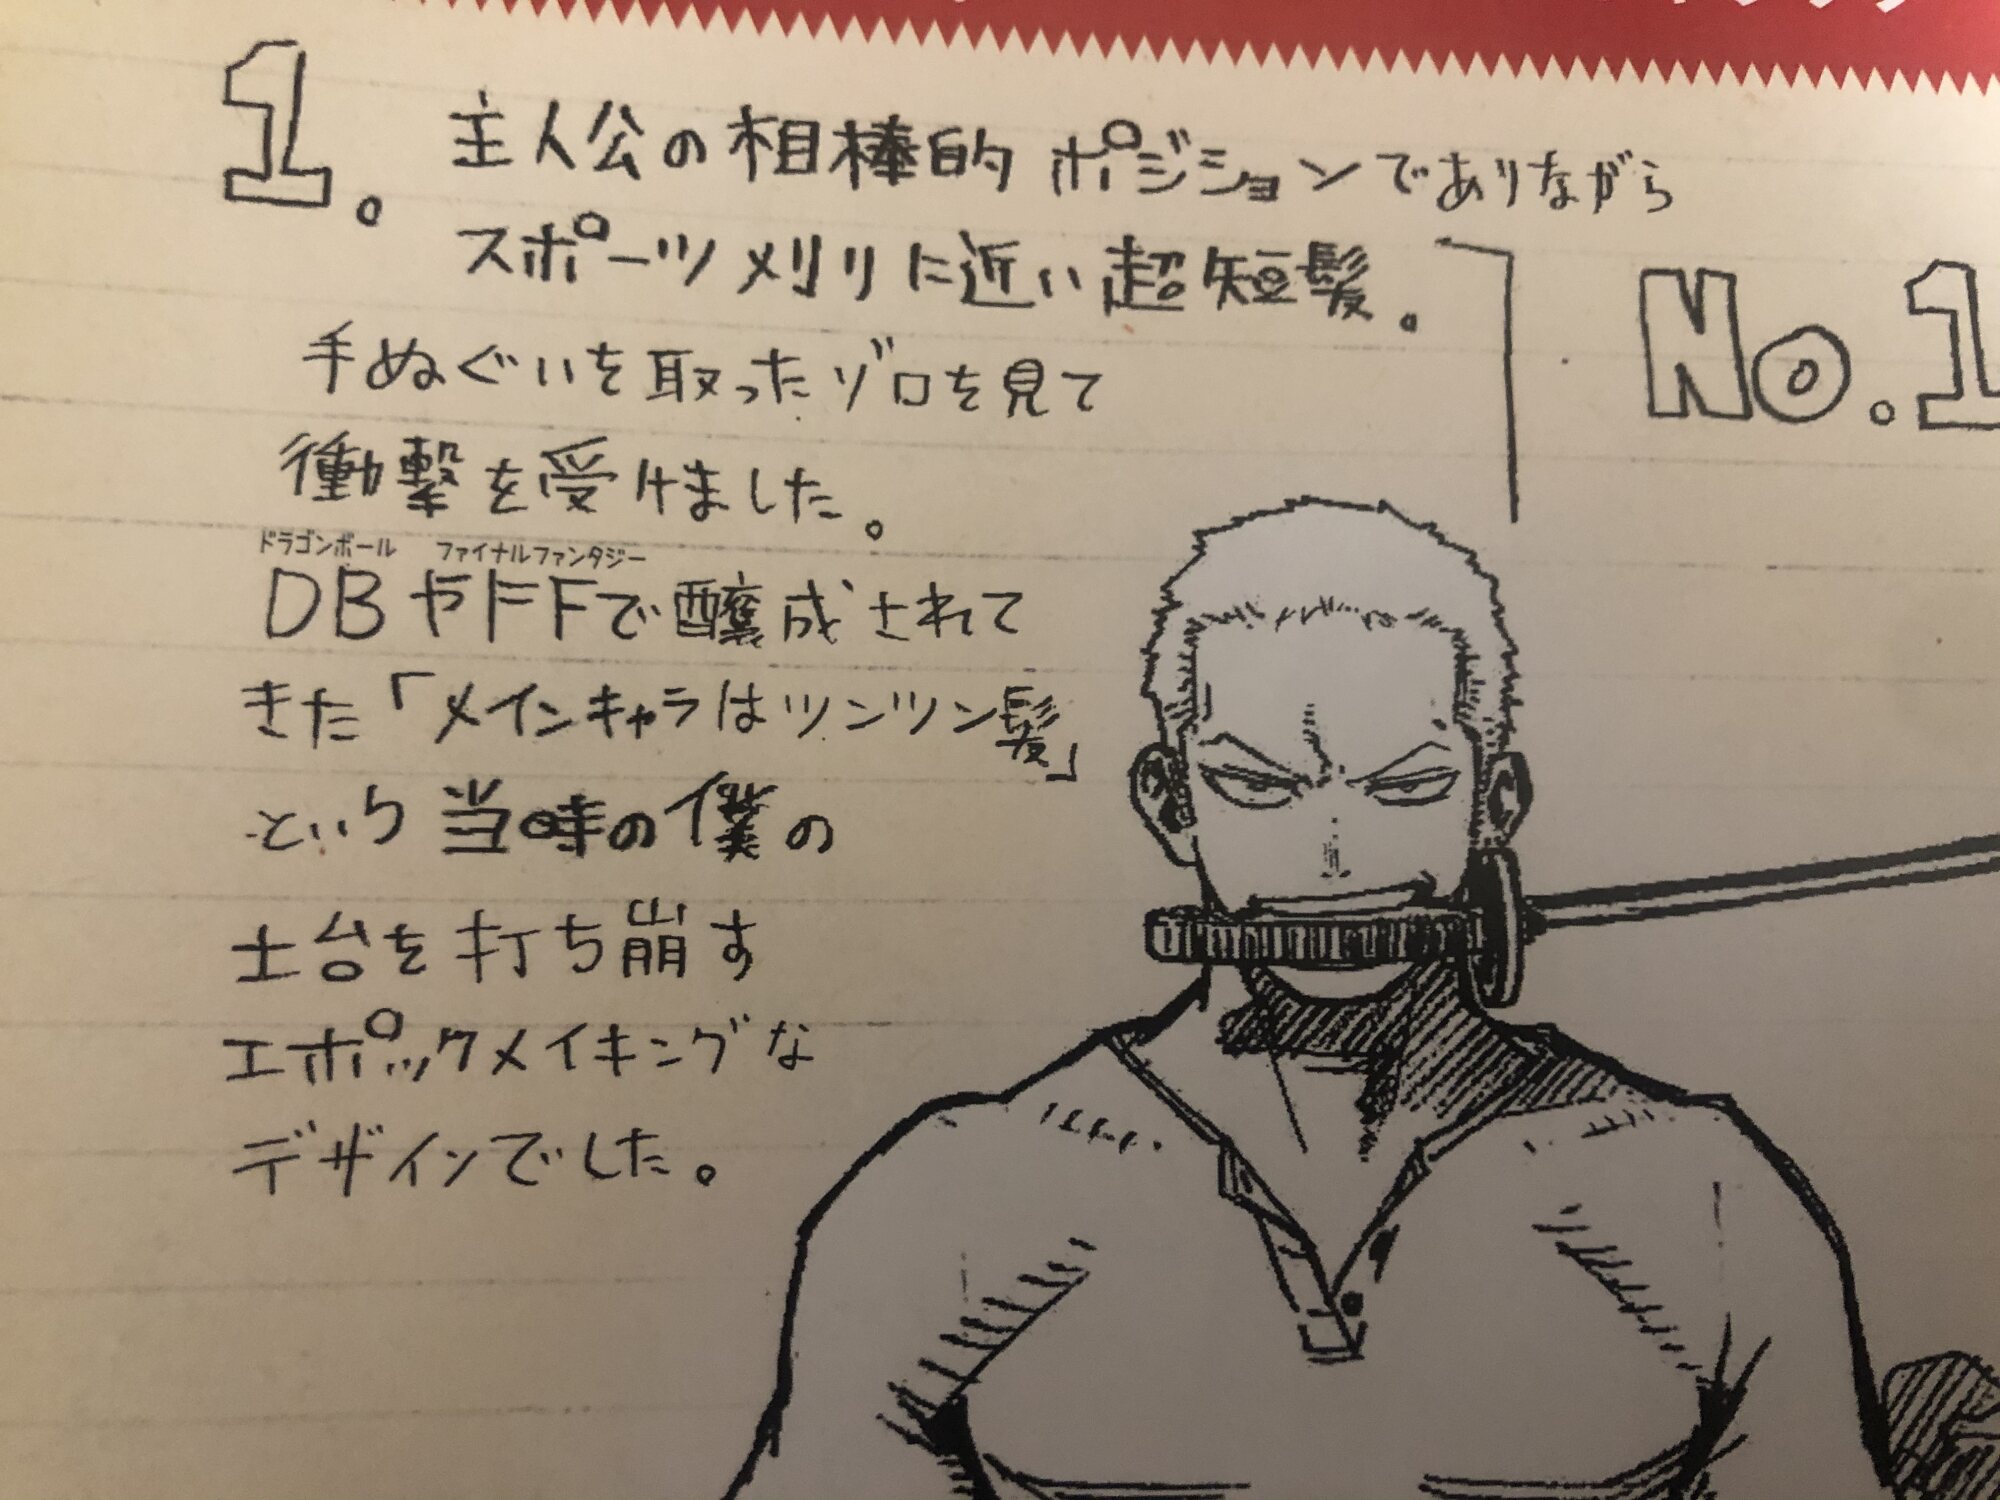 1. 主人公の相棒的ポジションでありながら
スポーツ刈りに近い超短髪。
手ぬぐいを取ったゾロを見て
衝撃を受けました。
ドラゴンボール ファイナルファンタジー
DBやFFで醸成されて
きた「メインキャラはツンツン髪」
という当時の僕の
土台を打ち崩す
エポックメイキングな
デザインでした。
No.1